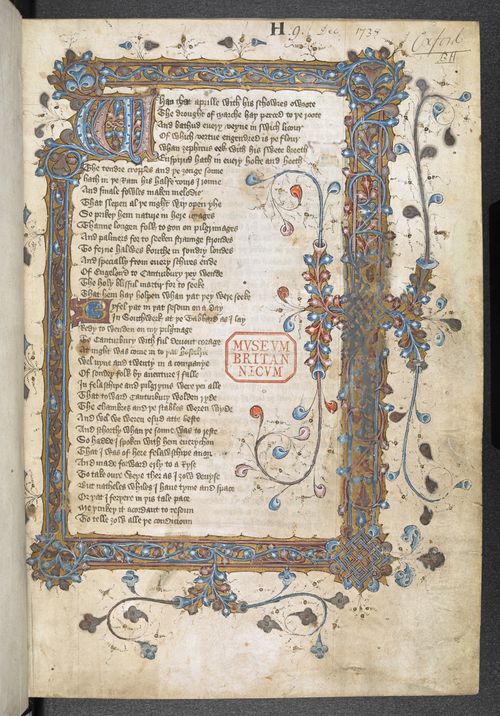 H 9. Dec 1737
Oxford
B H
Whan that aprille with his schowres swoote
The drought of marche hath perced to þe roote
And bathud euery veyne in swich licour
Of which vertue engendred is þe flour
Whan zephirus eek with his swete breeth
Enspirud hath in euery holte and heeth
The tendre croppes and þe ȝonge sonne
Hath in þe Ram his halfe cours I ronne
And smale fowles maken melodie
That slepen al þe night wiþ open yhe
So prikeþ hem nature in here corages
Thanne longen folk to gon on pilgrimages
And palmers for to seeken straunge strondes
To ferne halwes kouthe in sondry londes
And specially from euery schires ende
Of Engelond to Canturbury þey wende
The holy blisful martir for to seeke
That hem haþ holpen whan þat þey were seeke
Byfel þat in þat sesoun on a day
In Southwerk at þe Tabbard as I lay
Redy to wenden on my pilgrimage
To Canturbury with ful deuout corage
At night was come in to þat hostelrie
Wel nyne and twenty in a companye
Of sondry folk by auenture I falle
In felaschipe and pilgryms were þei alle
That toward Canturbury wolden ryde
The chambres and þe stables weren wyde
And wel we weren esud atte beste
And schortly whan þe sonne was to reste
So hadde I spoken with hem euerychon
That I was of here felawschipe anon
And made forward erly to aryse
To take oure weye ther as I ȝow deuyse
But natheles whiles I haue tyme and space
Or þat I forþere in þis tale pace
Me þinkeþ it acordant to resoun
To telle ȝow alle þe condicioun
MVSEVM
BRITAN
NICVM